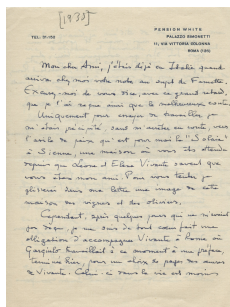 [1933]
TEL. 21-193
PENSION WHITE
PALAZZO SIMONETTI
11, VIA VITTORIA COLONNA
ROMA (126)
Mon cher Ami, j'étais déjà en Italie quand
arriva chez moi votre note au sujet de
Excusez-moi de vous dire, avec ce grand retard,
que je l'ai reçue ainsi que la
Uniquement pour essayer de travailler je
me étais sans m'arrêter en route, vers
l'asile de paix qui est pour moi le "Solaia"
à Sienne, une maison où vous êtes attendu
depuis que Léone et Elena Vivante savent que
vous êtes mon ami. Pour vous tenter je
glisserai dans ma lettre une image de cette
maison des vignes et des oliviers.
Cependant, après quelques jours qui ne
pas de je me suis de tout cœur fait une
obligation d'accompagner Vivante à Rome où
travaillait à ce moment à une préface
hier, pour un choix de pages des œuvres
de Vivante. Celui-ci dans la vie est moins